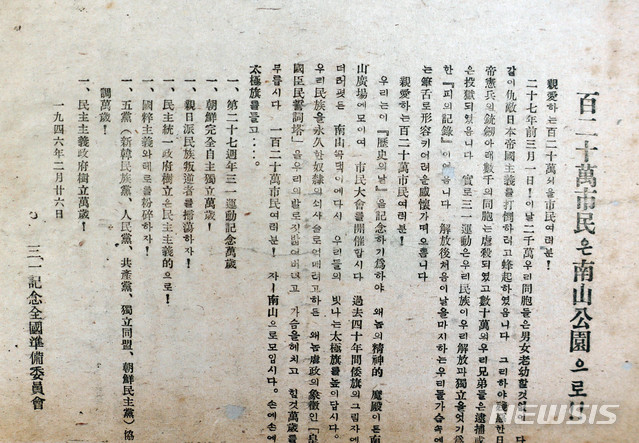 百二十萬市民은南山公園으로!
親愛하는百二十萬서울市民여러분!
二十七年前三月一日!이날二千萬우리同胞들은男女老幼할것없이 다
같이仇敵日本帝國主義를打倒하려고蜂起하였읍니다 그리하야
帝憲兵의銃劍아래數千의同胞는虐殺되였고數十萬의우리兄弟들은逮捕
은投獄되였습니다 實로三一運動은우리民族이우리解放과獨立을엇기爲
한『피의記錄』이였읍니다 解放後처음이날을마지하는우리들가슴속에
는筆舌로形容키어려운感懷가떠오릅니다
親愛하는百二十萬市民여러분!
우리는이『歷史의날』을記念하기爲하야 왜놈의精神的 魔殿이든南
山廣場에모이여 市民大會를開催합시다 過去四十年間倭旗의그림자에
더러펏든 南山꼭댁이에다시 우리들의 빗나는太極旗를높이답시다。
우리民族을永久한奴隷의쇠사슬로얽매려고하든 왜놈虐政의象徵인『皇
國臣民誓詞塔』을우리의발로짓밟어버리고 가슴을헤치고 힘껏萬歲를
부릅시다 一百二十萬市民여러분! 자—南山으로모입시다。손에손에
太極旗를들고……。
一、第二十七週年三一運動記念萬歲
一、朝鮮完全自主獨立萬歲!
一、親日派民族叛逆者를掃蕩하자!
一、民主統一政府樹立은民主主義的으로!
一、國粹主義와테로를粉碎하자!
一、五黨(新韓民族黨、人民黨、共產黨、獨立同盟、朝鮮民主黨)協
調萬歲!
一、民主主義政府樹立萬歲!
一九四六年二月廿六日
三一記念全國準備委員會
NEWSIS